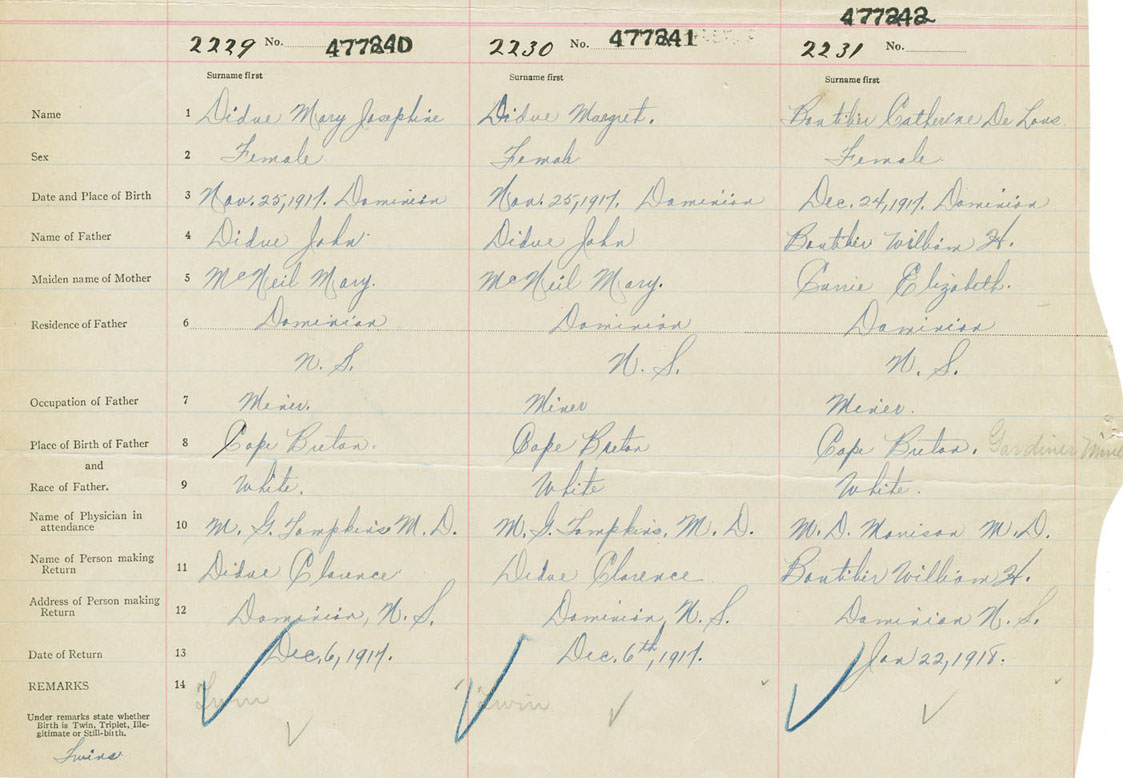 477242
2229 No. 477240 2230 No. 477241 2231 No.
Surname first Surname first Surname first
Name 1 Didue Mary Josephine Didue Margret. Boutilier Catherine De Lous
Sex 2 Female Female Female
Date and Place of Birth 3 Nov. 25, 1917. Dominion Nov. 25, 1917. Dominion Dec. 24, 1917. Dominion
Name of Father 4 Didue John Didue John Boutilier William H.
Maiden name of Mother 5 McNeil Mary. McNeil Mary. Currie Elizabeth.
Residence of Father 6 Dominion Dominion Dominion
N. S. N. S. N. S.
Occupation of Father 7 Miner. Miner Miner.
Place of Birth of Father 8 Cape Breton. Cape Breton Cape Breton. Gardiner Mine
and
Race of Father. 9 White. White White.
Name of Physician in
attendance 10 M. G. Tompkins M. D. M. G. Tompkins, M. D. M. D. Morrison M. D.
Name of Person making
Return 11 Didue Clarence Didue Clarence Boutilier William H.
Address of Person making
Return 12 Dominion, N. S. Dominion, N. S. Dominion N. S.
Date of Return 13 Dec. 6, 1917. Dec. 6th, 1917. Jan 22, 1918.
REMARKS 14 Twin Twin
Under remarks state whether
Birth is Twin, Triplet, Ille-
gitimate or Still-birth.
Twins